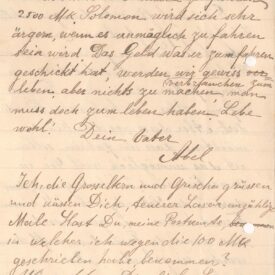 2500 Mk Solomon wird sich sehr
ärgern, wenn es unmöglich zu fahren
sein wird. Das Geld was er zum fahren
geschickt hat, werden wir gewiss
verbrauchen zum
leben, aber nichts zu machen, man
muss doch zum leben haben. Lebe
wohl! Dein Vater
Abel
Ich, die Grosseltern und Grischa grüssen
und küssen Dich, teuerer Lasar unzählige
Male. Hast Du meine Postkarte,
in welcher ich wegen die 100 Mk
geschrieben habe, bekommen?